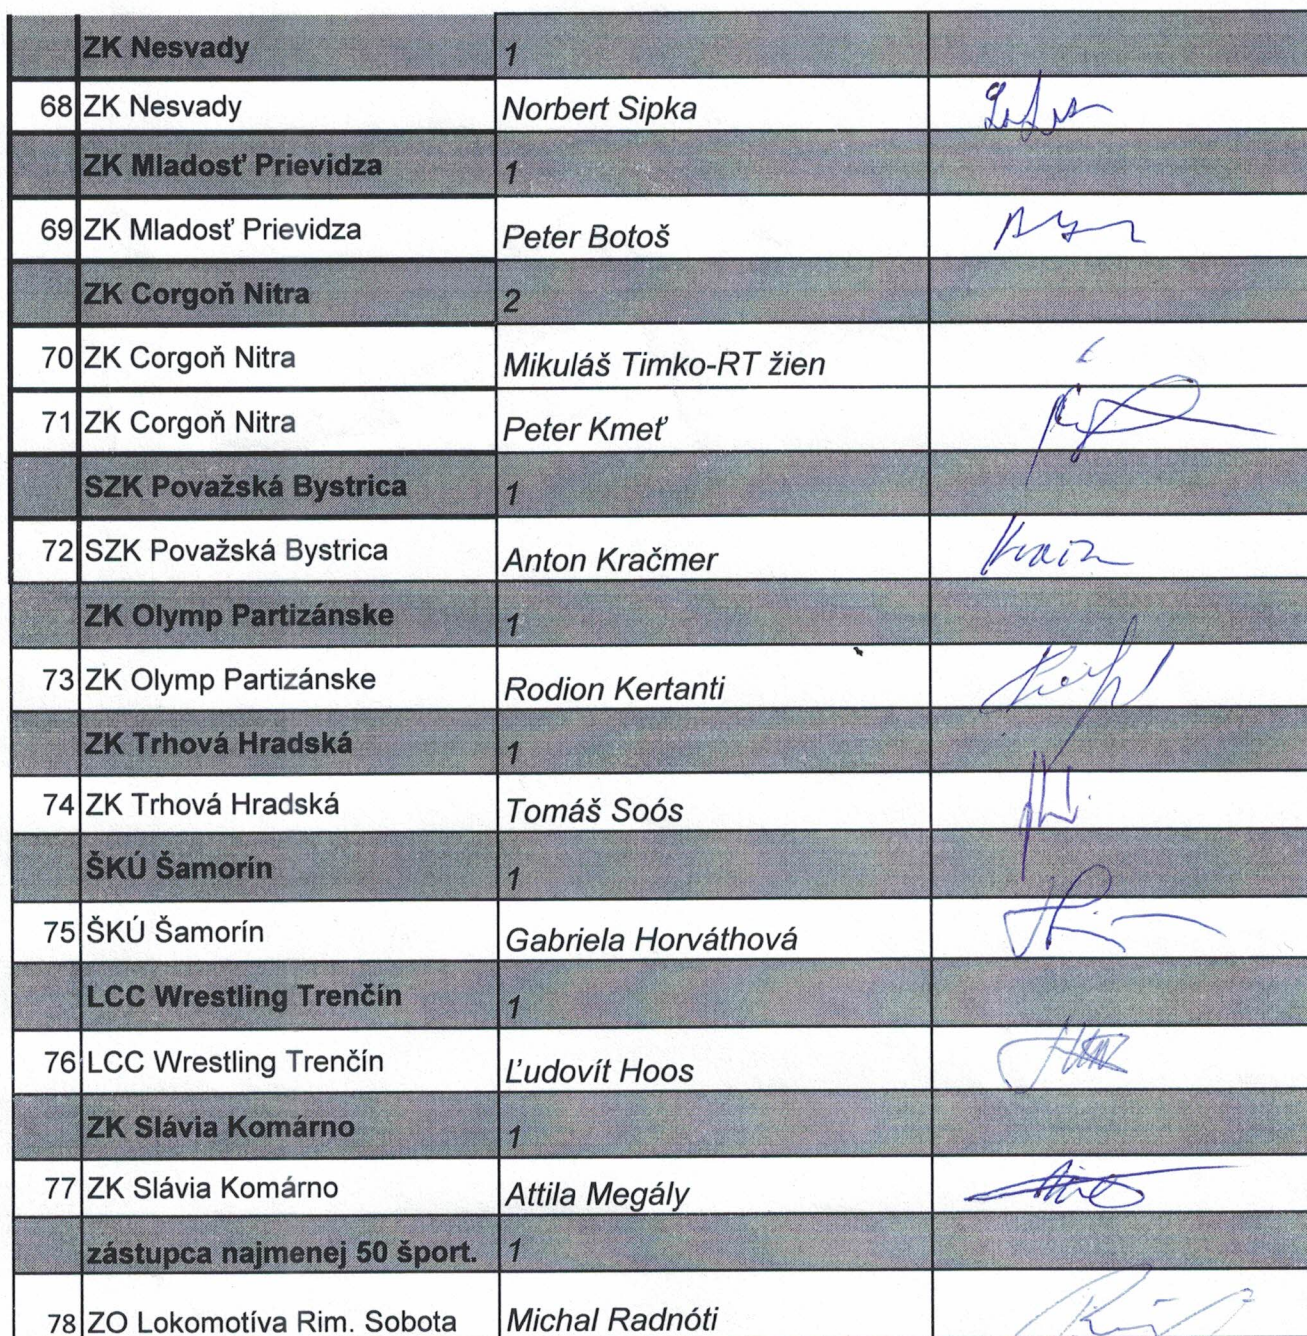 ZK Nesvady 1
68 ZK Nesvady Norbert Sipka
ZK Mladosť Prievidza 1
69 ZK Mladosť Prievidza Peter Botoš
ZK Corgoň Nitra 2
70 ZK Corgoň Nitra Mikuláš Timko-RT žien
71 ZK Corgoň Nitra Peter Kmeť
SZK Považská Bystrica 1
72 SZK Považská Bystrica Anton Kračmer
ZK Olymp Partizánske 1
73 ZK Olymp Partizánske Rodion Kertanti
ZK Trhová Hradská 1
74 ZK Trhová Hradská Tomáš Soós
ŠKÚ Šamorín 1
75 ŠKÚ Šamorín Gabriela Horváthová
LCC Wrestling Trenčín 1
76 LCC Wrestling Trenčín Ľudovít Hoos
ZK Slávia Komárno 1
77 ZK Slávia Komárno Attila Megály
zástupca najmenej 50 šport. 1
78 ZO Lokomotíva Rim. Sobota Michal Radnóti